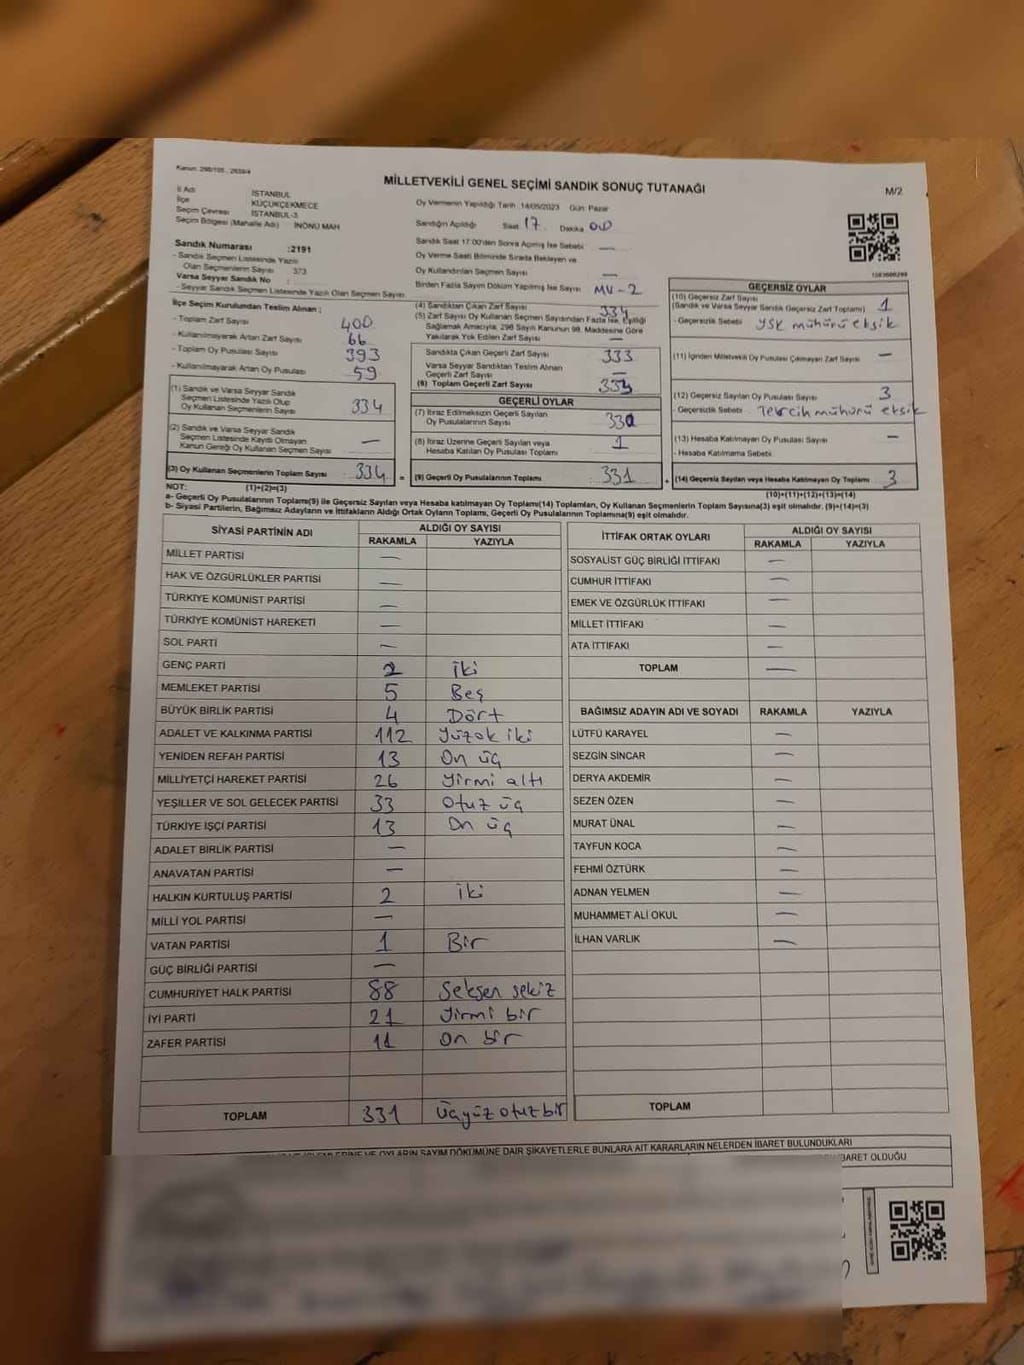 Kanun: 298/105 , 2839/4
MİLLETVEKİLİ GENEL SEÇİMİ SANDIK SONUÇ TUTANAĞI
M/2
İl Adı İSTANBUL
İlçe KÜÇÜKÇEKMECE
Seçim Çevresi İSTANBUL-3
Seçim Bölgesi (Mahalle Adı) İNÖNÜ MAH
Sandık Numarası :2191
- Sandık Seçmen Listesinde Yazılı
Olan Seçmenlerin Sayısı 373
Varsa Seyyar Sandık No :
- Seyyar Sandık Seçmen Listesinde Yazılı Olan Seçmen Sayısı
İlçe Seçim Kurulundan Teslim Alınan ;
- Toplam Zarf Sayısı 400
- Kullanılmayarak Artan Zarf Sayısı 66
- Toplam Oy Pusulası Sayısı 393
- Kullanılmayarak Artan Oy Pusulası 59
(1) Sandık ve Varsa Seyyar Sandık
Seçmen Listesinde Yazılı Olup
Oy Kullanan Seçmenlerin Sayısı 334
(2) Sandık ve Varsa Seyyar Sandık
Seçmen Listesinde Kaydı Olmayan
Kanun Gereği Oy Kullanan Seçmen Sayısı —
(3) Oy Kullanan Seçmenlerin Toplam Sayısı 334
Oy Vermenin Yapıldığı Tarih 14/05/2023 Gün: Pazar
Sandığın Açıldığı Saat 17 Dakika 00
Sandık Saat 17:00'den Sonra Açılmış İse Sebebi —
Oy Verme Saati Bitiminde Sırada Bekleyen ve
Oy Kullandırılan Seçmen Sayısı —
Birden Fazla Sayım Döküm Yapılmış İse Sayısı MV-2
(4) Sandıktan Çıkan Zarf Sayısı 334
(5) Zarf Sayısı Oy Kullanan Seçmen Sayısından Fazla İse, Eşitliği
Sağlamak Amacıyla, 298 Sayılı Kanunun 98. Maddesine Göre
Yakılarak Yok Edilen Zarf Sayısı —
Sandıkta Çıkan Geçerli Zarf Sayısı 333
Varsa Seyyar Sandıktan Teslim Alınan
Geçerli Zarf Sayısı —
(6) Toplam Geçerli Zarf Sayısı
GEÇERLİ OYLAR
(7) İtiraz Edilmeksizin Geçerli Sayılan
Oy Pusulalarının Sayısı 330
(8) İtiraz Üzerine Geçerli Sayılan veya
Hesaba Katılan Oy Pusulası Toplamı 1
= (9) Geçerli Oy Pusulalarının Toplamı 331
1583600299
GEÇERSİZ OYLAR
(10) Geçersiz Zarf Sayısı
(Sandık ve Varsa Seyyar Sandık Geçersiz Zarf Toplamı) 1
- Geçersizlik Sebebi YSK mühürü eksik
(11) İçinden Milletvekili Oy Pusulası Çıkmayan Zarf Sayısı —
(12) Geçersiz Sayılan Oy Pusulası Sayısı 3
- Geçersizlik Sebebi Tercih mühürü eksik
(13) Hesaba Katılmayan Oy Pusulası Sayısı —
- Hesaba Katılmama Sebebi
+ (14) Geçersiz Sayılan veya Hesaba Katılmayan Oy Toplamı 3
NOT: (1)+(2)=(3)
(10)+(11)+(12)+(13)=(14)
a- Geçerli Oy Pusulalarının Toplamı(9) ile Geçersiz Sayılan veya Hesaba katılmayan Oy Toplamı(14) Toplamları, Oy Kullanan Seçmenlerin Toplam Sayısına(3) eşit olmalıdır. (9)+(14)=(3)
b- Siyasi Partilerin, Bağımsız Adayların ve İttifakların Aldığı Ortak Oyların Toplamı, Geçerli Oy Pusulalarının Toplamına(9) eşit olmalıdır.
SİYASİ PARTİNİN ADI ALDIĞI OY SAYISI
RAKAMLA YAZIYLA
MİLLET PARTİSİ —
HAK VE ÖZGÜRLÜKLER PARTİSİ —
TÜRKİYE KOMÜNİST PARTİSİ —
TÜRKİYE KOMÜNİST HAREKETİ —
SOL PARTİ —
GENÇ PARTİ 2 iki
MEMLEKET PARTİSİ 5 Beş
BÜYÜK BİRLİK PARTİSİ 4 Dört
ADALET VE KALKINMA PARTİSİ 112 yüzok iki
YENİDEN REFAH PARTİSİ 13 On üç
MİLLİYETÇİ HAREKET PARTİSİ 26 Yirmi altı
YEŞİLLER VE SOL GELECEK PARTİSİ 33 Otuz üç
TÜRKİYE İŞÇİ PARTİSİ 13 On üç
ADALET BİRLİK PARTİSİ —
ANAVATAN PARTİSİ —
HALKIN KURTULUŞ PARTİSİ 2 iki
MİLLİ YOL PARTİSİ —
VATAN PARTİSİ 1 Bir
GÜÇ BİRLİĞİ PARTİSİ —
CUMHURİYET HALK PARTİSİ 88 Seksen sekiz
İYİ PARTİ 21 Yirmi bir
ZAFER PARTİSİ 11 On bir
TOPLAM 331 üçyüz otuz bir
İTTİFAK ORTAK OYLARI ALDIĞI OY SAYISI
RAKAMLA YAZIYLA
SOSYALİST GÜÇ BİRLİĞİ İTTİFAKI —
CUMHUR İTTİFAKI —
EMEK VE ÖZGÜRLÜK İTTİFAKI —
MİLLET İTTİFAKI —
ATA İTTİFAKI —
TOPLAM —
BAĞIMSIZ ADAYIN ADI VE SOYADI RAKAMLA YAZIYLA
LÜTFÜ KARAYEL —
SEZGİN SİNCAR —
DERYA AKDEMİR —
SEZEN ÖZEN —
MURAT ÜNAL —
TAYFUN KOCA —
FEHMİ ÖZTÜRK —
ADNAN YELMEN —
MUHAMMET ALİ OKUL —
İLHAN VARLIK —
TOPLAM
İŞLEMLERİNE VE OYLARIN SAYIM DÖKÜMÜNE DAİR ŞİKAYETLERLE BUNLARA AİT KARARLARIN NELERDEN İBARET BULUNDUKLARI
İBARET OLDUĞU